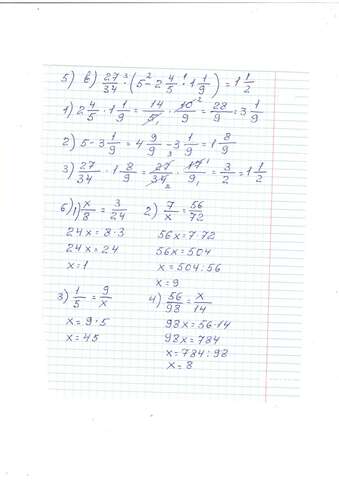 5) в) 27/34 ·³ (5 -² 2 4/5 ·¹ 1 1/9) = 1 1/2
1) 2 4/5 · 1 1/9 = 14/5₁ · 10²/9 = 28/9 = 3 1/9
2) 5 - 3 1/9 = 4 9/9 - 3 1/9 = 1 8/9
3) 27/34 · 1 8/9 = 27³/34₂ · 17¹/9₁ = 3/2 = 1 1/2
6) 1) x/8 = 3/24
24x = 8·3
24x = 24
x = 1
2) 7/x = 56/72
56x = 7·72
56x = 504
x = 504 : 56
x = 9
3) 1/5 = 9/x
x = 9·5
x = 45
4) 56/98 = x/14
98x = 56·14
98x = 784
x = 784 : 98
x = 8